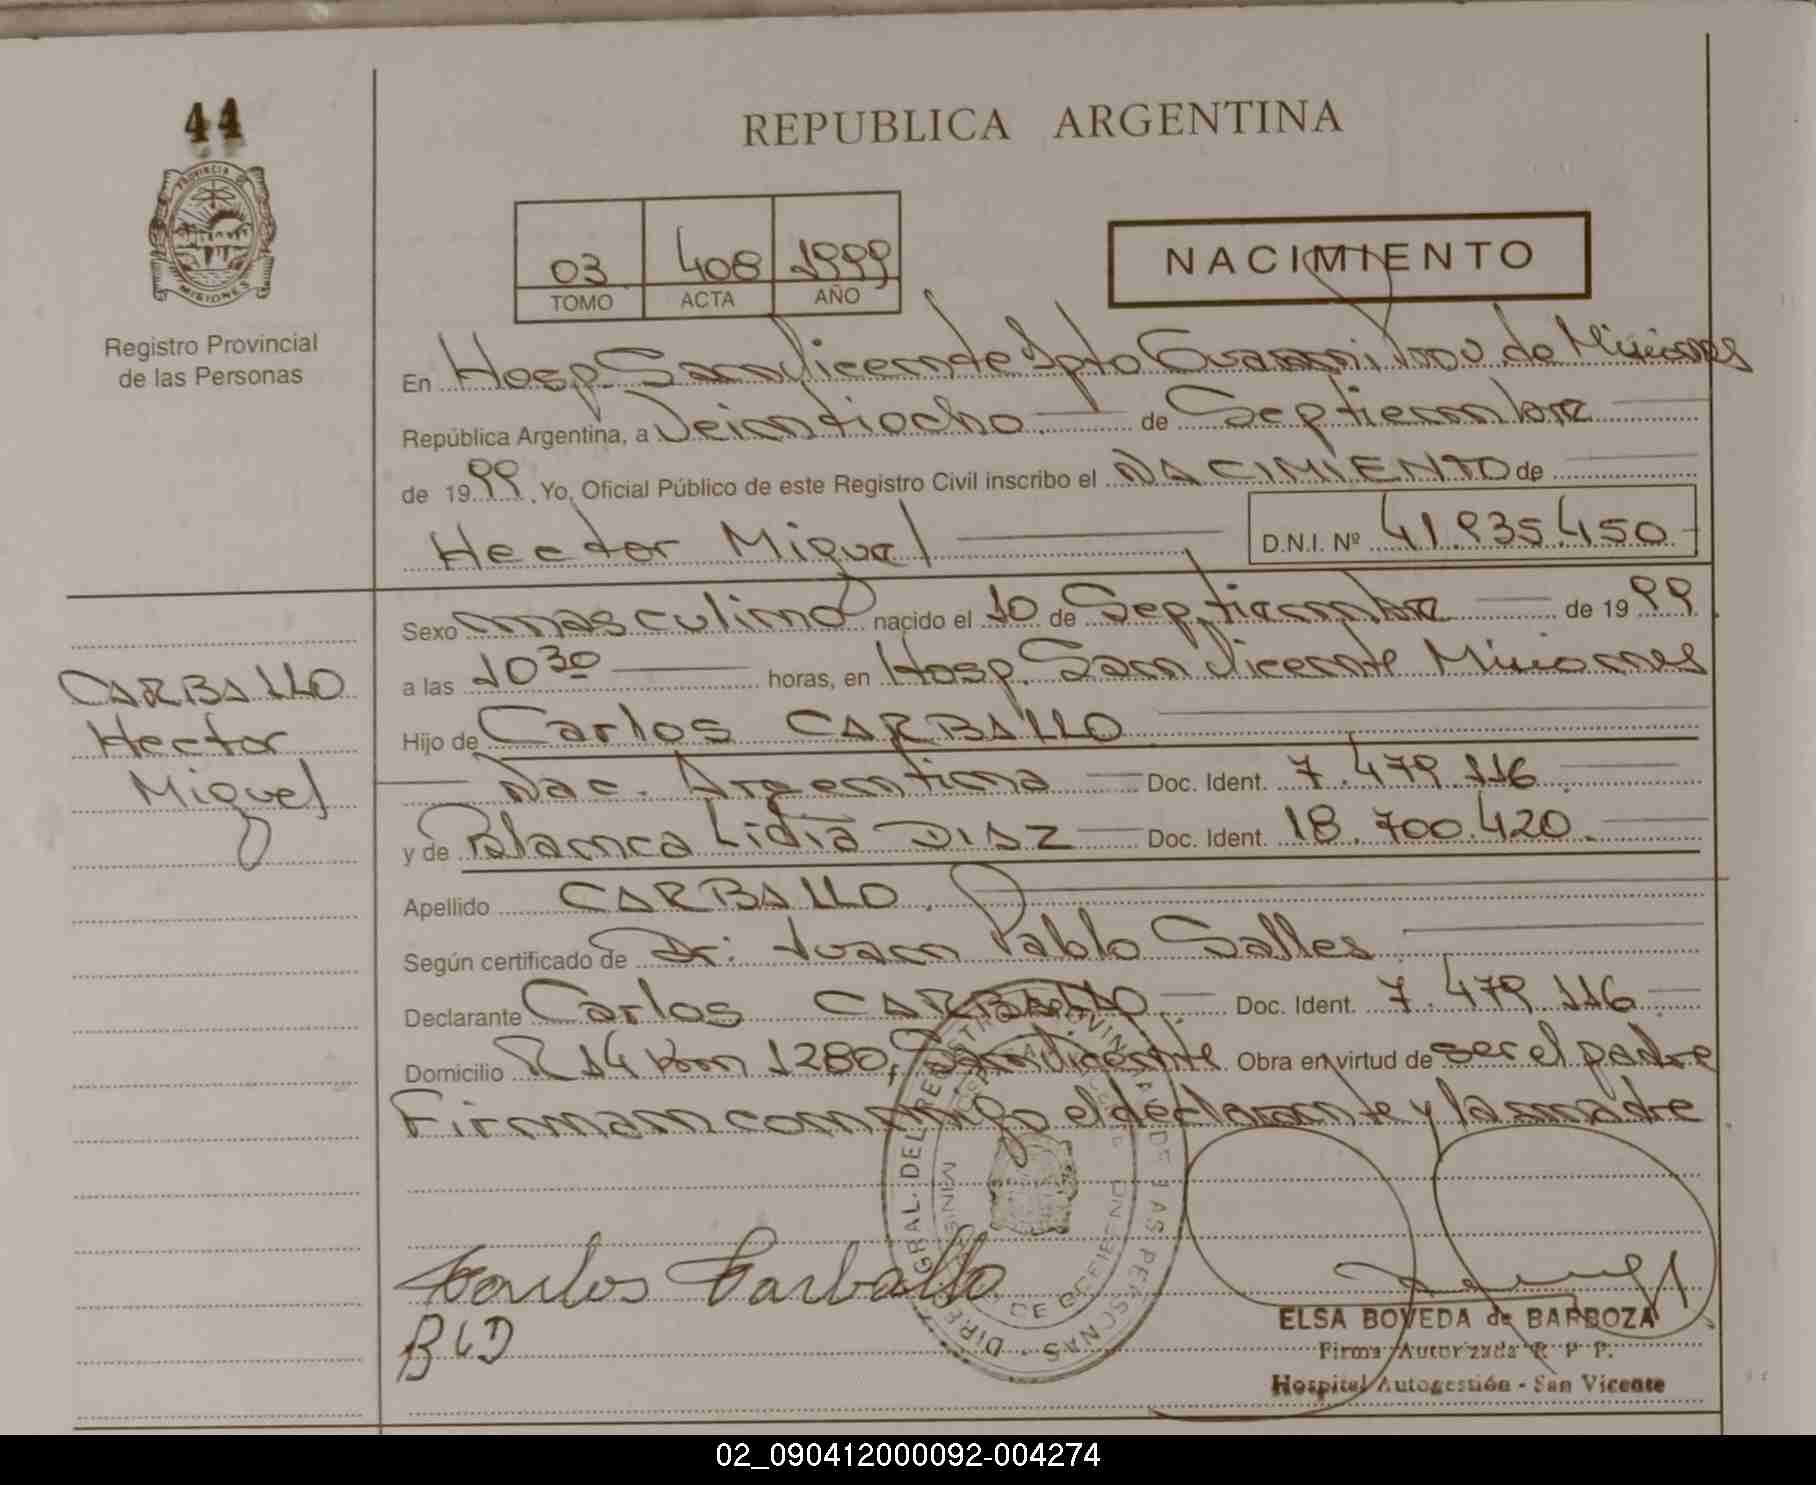 44
PROVINCIA DE
MISIONES
Registro Provincial
de las Personas
REPUBLICA ARGENTINA
03 408 1999
TOMO ACTA AÑO
NACIMIENTO
En Hosp. San Vicente Dpto Guarani Prov de Misiones
República Argentina, a Veintiocho de Septiembre
de 1999. Yo, Oficial Público de este Registro Civil inscribo el NACIMIENTO de
Hector Miguel D.N.I. Nº 41.935.450
Sexo masculino nacido el 10 de Septiembre de 1999
a las 10 30 horas, en Hosp. San Vicente Misiones
Hijo de Carlos CARBALLO
Nac. Argentina Doc. Ident. 7.479.116
y de Blanca Lidia DIAZ Doc. Ident. 18.700.420.
Apellido CARBALLO.
Según certificado de Dr: Juan Pablo Salles
Declarante Carlos CARBALLO. Doc. Ident. 7.479.116
Domicilio R 14 Km 1280, San Vicente Obra en virtud de ser el padre
Firman conmigo el declarante y la madre
CARBALLO
Hector
Miguel
Carlos Carballo
BLD
ELSA BOVEDA de BARBOZA
Firma Autorizada R. P. P.
Hospital Autogestión - San Vicente
02_090412000092-004274